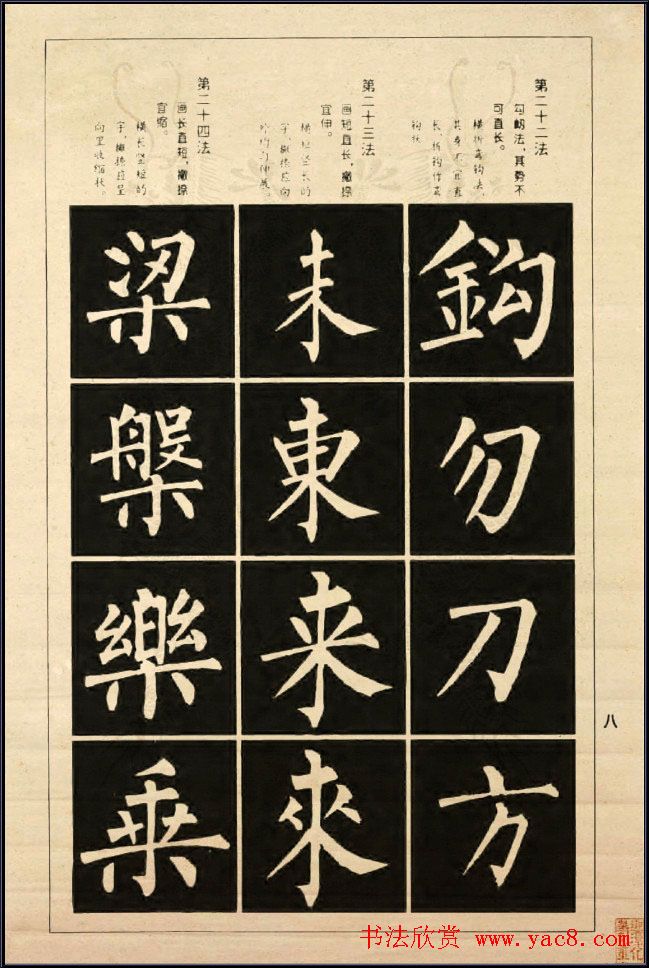 第二十二法
勾法，其势不
可直长。
第二十三法
画短直长，撇捺
宜伸。
横短竖长的
字，撇捺应向
外均匀伸展。
第二十四法
画长直短，撇捺
宜缩。
横长竖短的
字，撇捺应呈
向里收缩状。
鈎勿刀方
未東来來
梁槃樂乗
八
书法欣赏 www.yac8.com